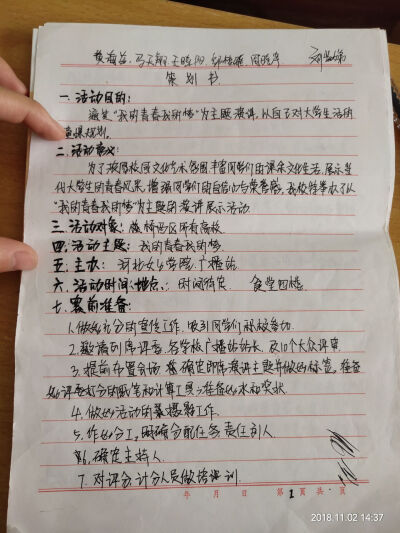 策划书
一、活动目的:
"我的青春我的梦"为主题演讲,以自己对大学生活的
规划。
二、活动意义:
为了 校园文化艺术氛围,丰富同学们的课余文化生活,展示当
代大学生的青春风采,增强同学们的自信心与荣誉感,我校 举办了以
"我的青春我的梦"为主题的演讲展示活动.
三、活动对象: 桥西区所有高校
四、活动主题: 我的青春我的梦.
五、主办: 河北女子学院.广播站
六、活动时间、地点: 时间待定 食堂四楼
七、赛前准备:
1.做好充分的宣传工作,吸引同学们积极参加.
2.邀请到 评委,各学校广播站站长,及10个大众评审
3.提前布置会场, 确定 演讲主题并做好标签,准备
好评委打分的纸笔和计算工具,准备好水和奖状.
4.做好活动的 摄影工作.
5.作好分工,明确分配任务,责任到人.
6.确定主持人.
7.对评分、计分人员做培训.
年 月 日 第1页共 页
2018.11.02 14:37